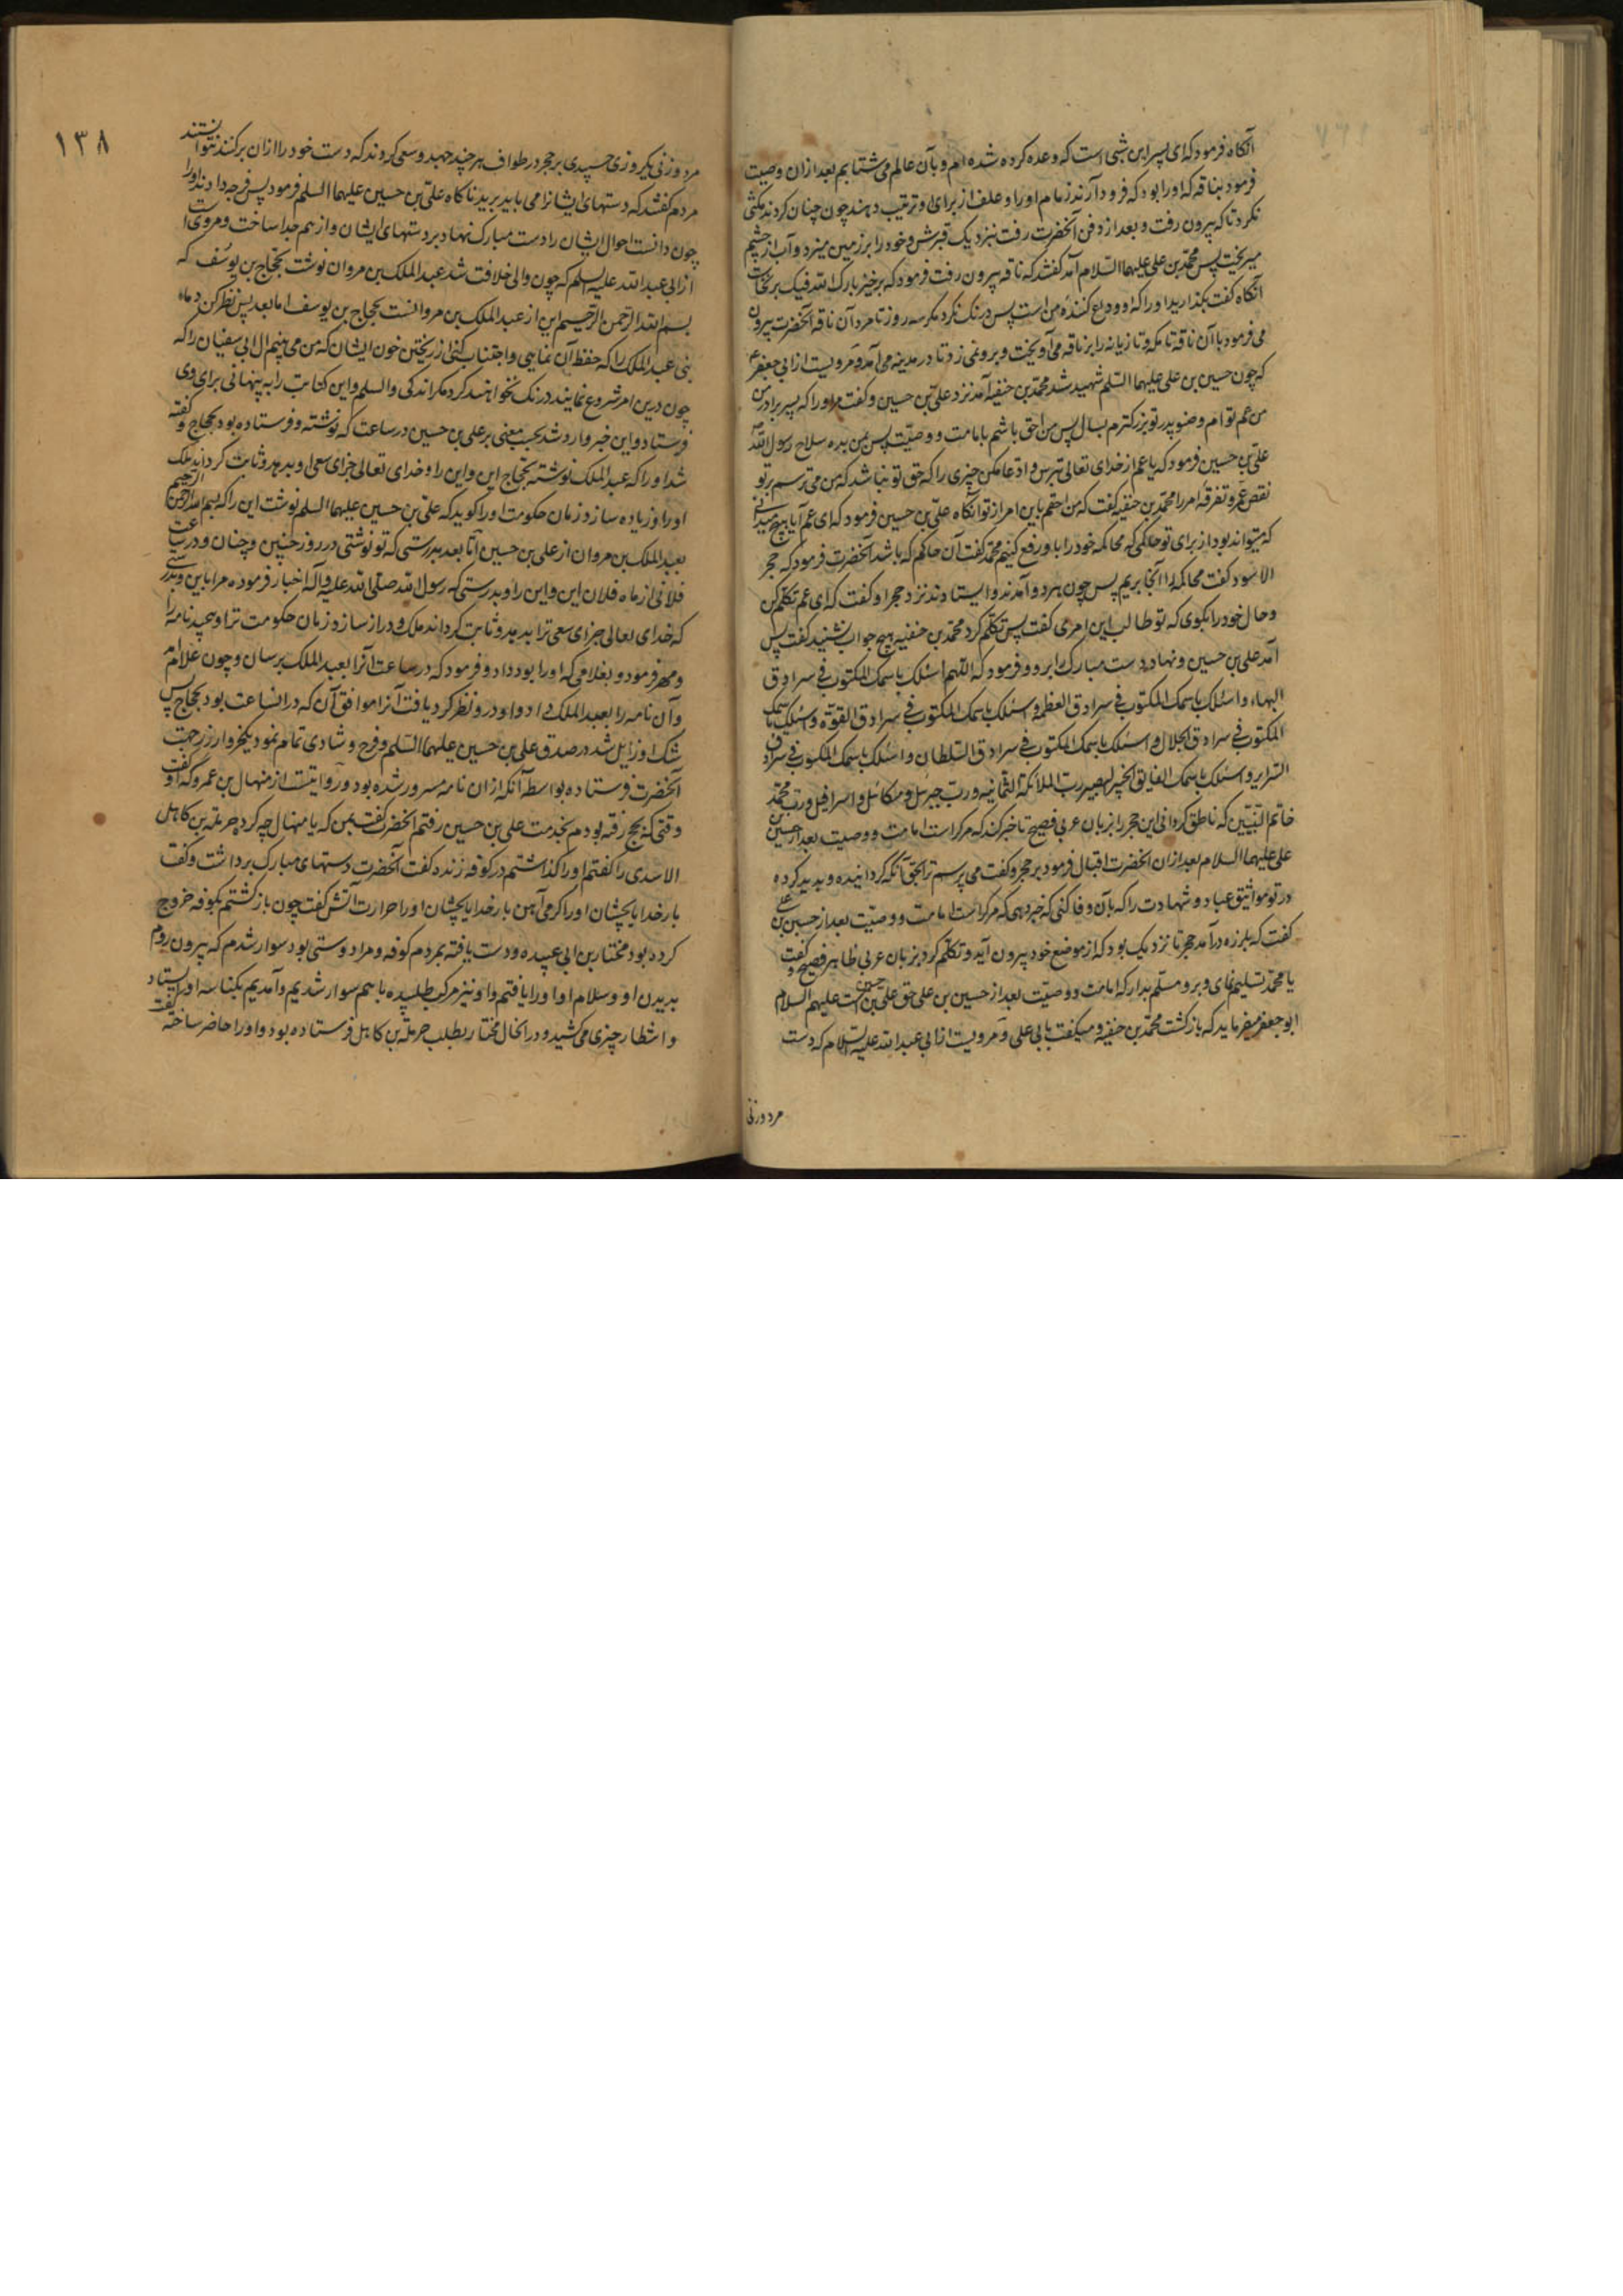 آنکاه فرمود که ای پسر این شبی است که وعده کرده شده ام و بآن عالم می شتابم بعد ازان وصیت
فرمود بناقه که اورا بود که فرود آرند زمام اورا و علف از برای او ترتیب دهند چون چنان کردند مکثی
نکرد تا که بیرون رفت و بعد از دفن آنحضرت رفت بنزدیک قبرش و خود را بر زمین میزد و آب از چشم
میریخت پس محمد بن علی علیهما السلام آمد کفتند که ناقه بیرون رفت فرمود که برخیز بارک الله فیک برنخاست
آنکاه کفت بکذارید اورا که او وداع کننده من است پس درنک نکرد مکر سه روز تا مرد آن ناقه آنحضرت بیرون
می فرمود با آن ناقه تا مکه و تازیانه را بر ناقه می آویخت و برو نمی زد تا در مدینه می آمد و مرویست از ابی جعفر ع
که چون حسین بن علی علیهما السلم شهید شد محمد بن حنفیه آمد نزد علی بن حسین و کفت مر اورا که پسر برادر من
من عم توام و صنو پدر تو بزرکترم بسال پس من احق باشم بامامت و وصیت پس بمن بده سلاح رسول الله
علی بن حسین فرمود که یا عم از خدای تعالی بترس و ادعا مکن چیزی را که حق تو نباشد که من می ترسم بر تو
نقص عمر و تفرقه امر را محمد بن حنفیه کفت که من احقم باین امر از تو آنکاه علی بن حسین فرمود که ای عم آیا هیچ میدانی
که میتواند بود از برای تو حاکمی که محاکمه خود را باو رفع کنیم محمد کفت آن حاکم که باشد آنحضرت فرمود که حجر
الاسود کفت محاکمه را آنجا بریم پس چون هر دو آمدند و ایستادند نزد حجر او کفت که ای عم تکلم کن
و حال خود را بکوی که تو طالب این امری کفت پس تکلم کرد محمد بن حنفیه هیچ جواب نشنید کفت پس
آمد علی بن حسین و نهاد دست مبارک بر او و فرمود که اللهم اسئلک باسمک المکتوب فی سرادق
البهاء و اسئلک باسمک المکتوب فی سرادق العظمة و اسئلک باسمک المکتوب فی سرادق القوة و اسئلک باسمک
المکتوب فی سرادق الجلال و اسئلک باسمک المکتوب فی سرادق السلطان و اسئلک باسمک المکتوب فی سرادق
السرایر و اسئلک باسمک الفایق الخبیر البصیر رب الملائکة الثمانیه و رب جبرئیل و میکائیل و اسرافیل و رب محمد
خاتم النبیین که ناطق کردانی این حجر را بزبان عربی فصیح تا خبر کند که مرکراست امامت و وصیت بعد از حسین بن
علی علیهما السلام بعد ازان آنحضرت اقبال فرمود بر حجر و کفت می پرسم ترا بحق آنکه کردانیده و پدید کرده
در تو مواثیق عباد و شهادت را که بآن وفا کنی که خبر دهی که مرکراست امامت و وصیت بعد از حسین بن علی
کفت که بلرزه درآمد حجر تا نزدیک بود که از موضع خود بیرون آید و تکلم کرد بزبان عربی ظاهر فصیح و کفت
یا محمد تسلیم نمای و برو مسلم بدار که امامت و وصیت بعد از حسین بن علی حق علی بن حسین است علیهم السلام
ابو جعفر میفرماید که بازکشت محمد بن حنفیه و میکفت بابی علی و مرویست از ابی عبدالله علیه السلام که دست
مرد و زنی
۱۳۸
مرد و زنی یکروزی چسپیدی بر حجر در طواف هر چند جهد و سعی کردند که دست خود را ازان برکنند نتوانستند
مردم کفتند که دستهای ایشانرا می باید برید ناکاه علی بن حسین علیهما السلم فرمود پس فرجه دادند اورا
چون دانست احوال ایشان را دست مبارک نهاد بر دستهای ایشان و از هم جدا ساخت و مرویست
از ابی عبدالله علیه السلم که چون والی خلافت شد عبد الملک بن مروان نوشت بحجاج بن یوسف که
بسم الله الرحمن الرحیم این از عبد الملک بن مروانست بحجاج بن یوسف اما بعد پس نظر کن دماء
بنی عبد المطلب را که حفظ آن نمایی و اجتناب کنی از ریختن خون ایشان که من می بینم آل ابی سفیان را که
چون درین امر شروع نمایند درنک نخواهند کرد مکر اندکی والسلم و این کتابت را به پنهانی برای وی
فرستاد و این خبر وارد شد بحسب معنی بر علی بن حسین در ساعت که نوشته و فرستاده بود بحجاج و کفته
شد اورا که عبد الملک نوشته بحجاج این و این را و خدای تعالی جزای سعی او بدهد و ثابت کرداند ملک
اورا و زیاده سازد زمان حکومت اورا کوید که علی بن حسین علیهما السلم نوشت این را که بسم الله الرحمن الرحیم
بعبد الملک بن مروان از علی بن حسین اما بعد بدرستی که تو نوشتی در روز چنین و چنان و در ساعت
فلانی از ماه فلان این و این را و بدرستی که رسول الله صلی الله علیه و آله اخبار فرموده مرا باین و بدرستی
که خدای تعالی جزای سعی ترا بدهد و ثابت کرداند ملک و دراز سازد زمان حکومت ترا و پیچید نامه را
و مهر فرمود و بغلامی که اورا بود داد و فرمود که در ساعت آنرا بعبد الملک برسان و چون غلام آمد
و آن نامه را بعبد الملک داد و او درو نظر کرد یافت آنرا موافق آن که در انساعت بود بحجاج پس
شک او زایل شد در صدق علی بن حسین علیهما السلم و فرح و شادی تمام نمود یکخروار زر جهت
آنحضرت فرستاده بواسطه آنکه ازان نامه مسرور شده بود و روایتست از منهال بن عمرو که او کفت
وقتی که بحج رفته بودم بخدمت علی بن حسین رفتم آنحضرت کفت بمن که یا منهال چه کرد حرملة بن کاهل
الاسدی را کفتم اورا کذاشتم در کوفه زنده کفت آنحضرت دستهای مبارک برداشت و کفت
بار خدایا بچشان اورا کرمی آهن بار خدایا بچشان اورا حرارت آتش کفت چون بازکشتم بکوفه خروج
کرده بود مختار بن ابی عبیده و دست یافته بمردم کوفه و مرا دوستی بود سوار شدم که بیرون روم
بدیدن او و سلام او اورا یافتم و او نیز مرکب طلبیده با هم سوار شدیم و آمدیم بکناسه او ایستاد
و انتظار چیزی می کشید و در انحال مختار بطلب حرملة بن کاهل فرستاده بود و اورا حاضر ساخته کفت